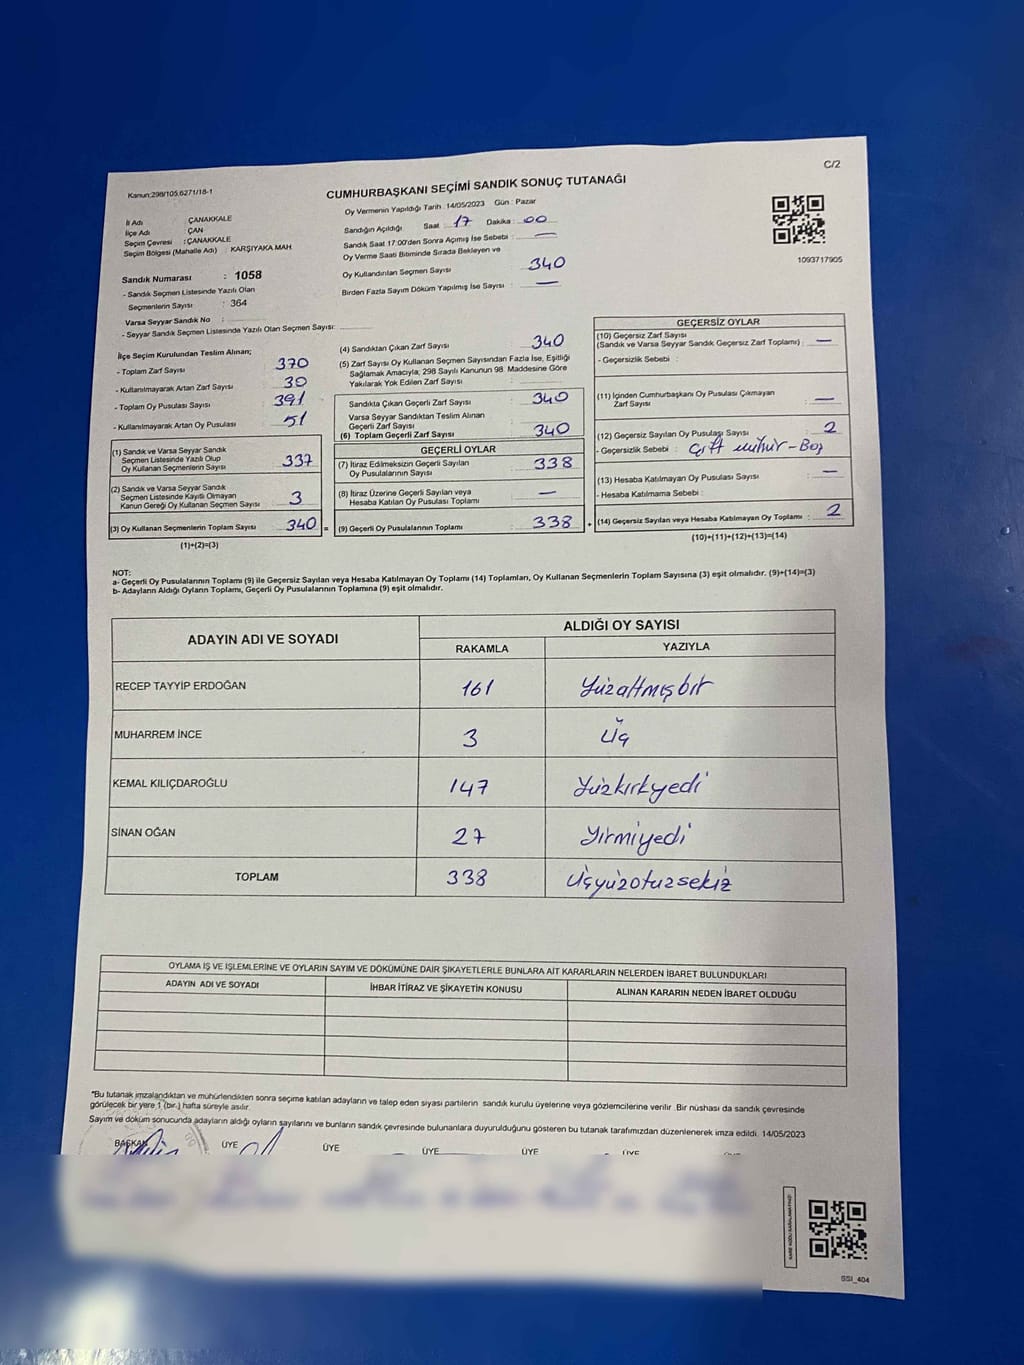 C/2
Kanun:298/105,6271/18-1
CUMHURBAŞKANI SEÇİMİ SANDIK SONUÇ TUTANAĞI
İl Adı : ÇANAKKALE
İlçe Adı : ÇAN
Seçim Çevresi : ÇANAKKALE
Seçim Bölgesi (Mahalle Adı) : KARŞIYAKA MAH.
Sandık Numarası : 1058
- Sandık Seçmen Listesinde Yazılı Olan
Seçmenlerin Sayısı : 364
Varsa Seyyar Sandık No :
- Seyyar Sandık Seçmen Listesinde Yazılı Olan Seçmen Sayısı:
Oy Vermenin Yapıldığı Tarih : 14/05/2023 Gün : Pazar
Sandığın Açıldığı Saat : 17 Dakika : 00
Sandık Saat 17:00'den Sonra Açımış İse Sebebi : —
Oy Verme Saati Bitiminde Sırada Bekleyen ve
Oy Kullandırılan Seçmen Sayısı : 340
Birden Fazla Sayım Döküm Yapılmış İse Sayısı : —
1093717905
İlçe Seçim Kurulundan Teslim Alınan;
- Toplam Zarf Sayısı 370
- Kullanılmayarak Artan Zarf Sayısı 30
- Toplam Oy Pusulası Sayısı 391
- Kullanılmayarak Artan Oy Pusulası 51
(1) Sandık ve Varsa Seyyar Sandık
Seçmen Listesinde Yazılı Olup
Oy Kullanan Seçmenlerin Sayısı 337
(2) Sandık ve Varsa Seyyar Sandık
Seçmen Listesinde Kayıtlı Olmayan
Kanun Gereği Oy Kullanan Seçmen Sayısı 3
(3) Oy Kullanan Seçmenlerin Toplam Sayısı 340 =
(1)+(2)=(3)
(4) Sandıktan Çıkan Zarf Sayısı : 340
(5) Zarf Sayısı Oy Kullanan Seçmen Sayısından Fazla İse, Eşitliği
Sağlamak Amacıyla, 298 Sayılı Kanunun 98. Maddesine Göre
Yakılarak Yok Edilen Zarf Sayısı :
Sandıkta Çıkan Geçerli Zarf Sayısı : 340
Varsa Seyyar Sandıktan Teslim Alınan
Geçerli Zarf Sayısı :
(6) Toplam Geçerli Zarf Sayısı : 340
GEÇERLİ OYLAR
(7) İtiraz Edilmeksizin Geçerli Sayılan
Oy Pusulalarının Sayısı : 338
(8) İtiraz Üzerine Geçerli Sayılan veya
Hesaba Katılan Oy Pusulası Toplamı : —
(9) Geçerli Oy Pusulalarının Toplamı : 338 +
GEÇERSİZ OYLAR
(10) Geçersiz Zarf Sayısı
(Sandık ve Varsa Seyyar Sandık Geçersiz Zarf Toplamı) : —
- Geçersizlik Sebebi :
(11) İçinden Cumhurbaşkanı Oy Pusulası Çıkmayan
Zarf Sayısı : —
(12) Geçersiz Sayılan Oy Pusulası Sayısı : 2
- Geçersizlik Sebebi : Çift mühür-Boş
(13) Hesaba Katılmayan Oy Pusulası Sayısı : —
- Hesaba Katılmama Sebebi :
(14) Geçersiz Sayılan veya Hesaba Katılmayan Oy Toplamı : 2
(10)+(11)+(12)+(13)=(14)
NOT:
a- Geçerli Oy Pusulalarının Toplamı (9) ile Geçersiz Sayılan veya Hesaba Katılmayan Oy Toplamı (14) Toplamları, Oy Kullanan Seçmenlerin Toplam Sayısına (3) eşit olmalıdır. (9)+(14)=(3)
b- Adayların Aldığı Oyların Toplamı, Geçerli Oy Pusulalarının Toplamına (9) eşit olmalıdır.
ADAYIN ADI VE SOYADI ALDIĞI OY SAYISI
RAKAMLA YAZIYLA
RECEP TAYYİP ERDOĞAN 161 Yüzaltmışbir
MUHARREM İNCE 3 Üç
KEMAL KILIÇDAROĞLU 147 Yüzkırkyedi
SİNAN OĞAN 27 Yirmiyedi
TOPLAM 338 Üçyüzotuzsekiz
OYLAMA İŞ VE İŞLEMLERİNE VE OYLARIN SAYIM VE DÖKÜMÜNE DAİR ŞİKAYETLERLE BUNLARA AİT KARARLARIN NELERDEN İBARET BULUNDUKLARI
ADAYIN ADI VE SOYADI İHBAR İTİRAZ VE ŞİKAYETİN KONUSU ALINAN KARARIN NEDEN İBARET OLDUĞU
*Bu tutanak imzalandıktan ve mühürlendikten sonra seçime katılan adayların ve talep eden siyasi partilerin sandık kurulu üyelerine veya gözlemcilerine verilir. Bir nüshası da sandık çevresinde
görülecek bir yere 1 (bir ) hafta süreyle asılır.
Sayım ve döküm sonucunda adayların aldığı oyların sayılarını ve bunların sandık çevresinde bulunanlara duyurulduğunu gösteren bu tutanak tarafımızdan düzenlenerek imza edildi. 14/05/2023
BAŞKAN ÜYE ÜYE ÜYE ÜYE ÜYE ÜYE
SSI_404